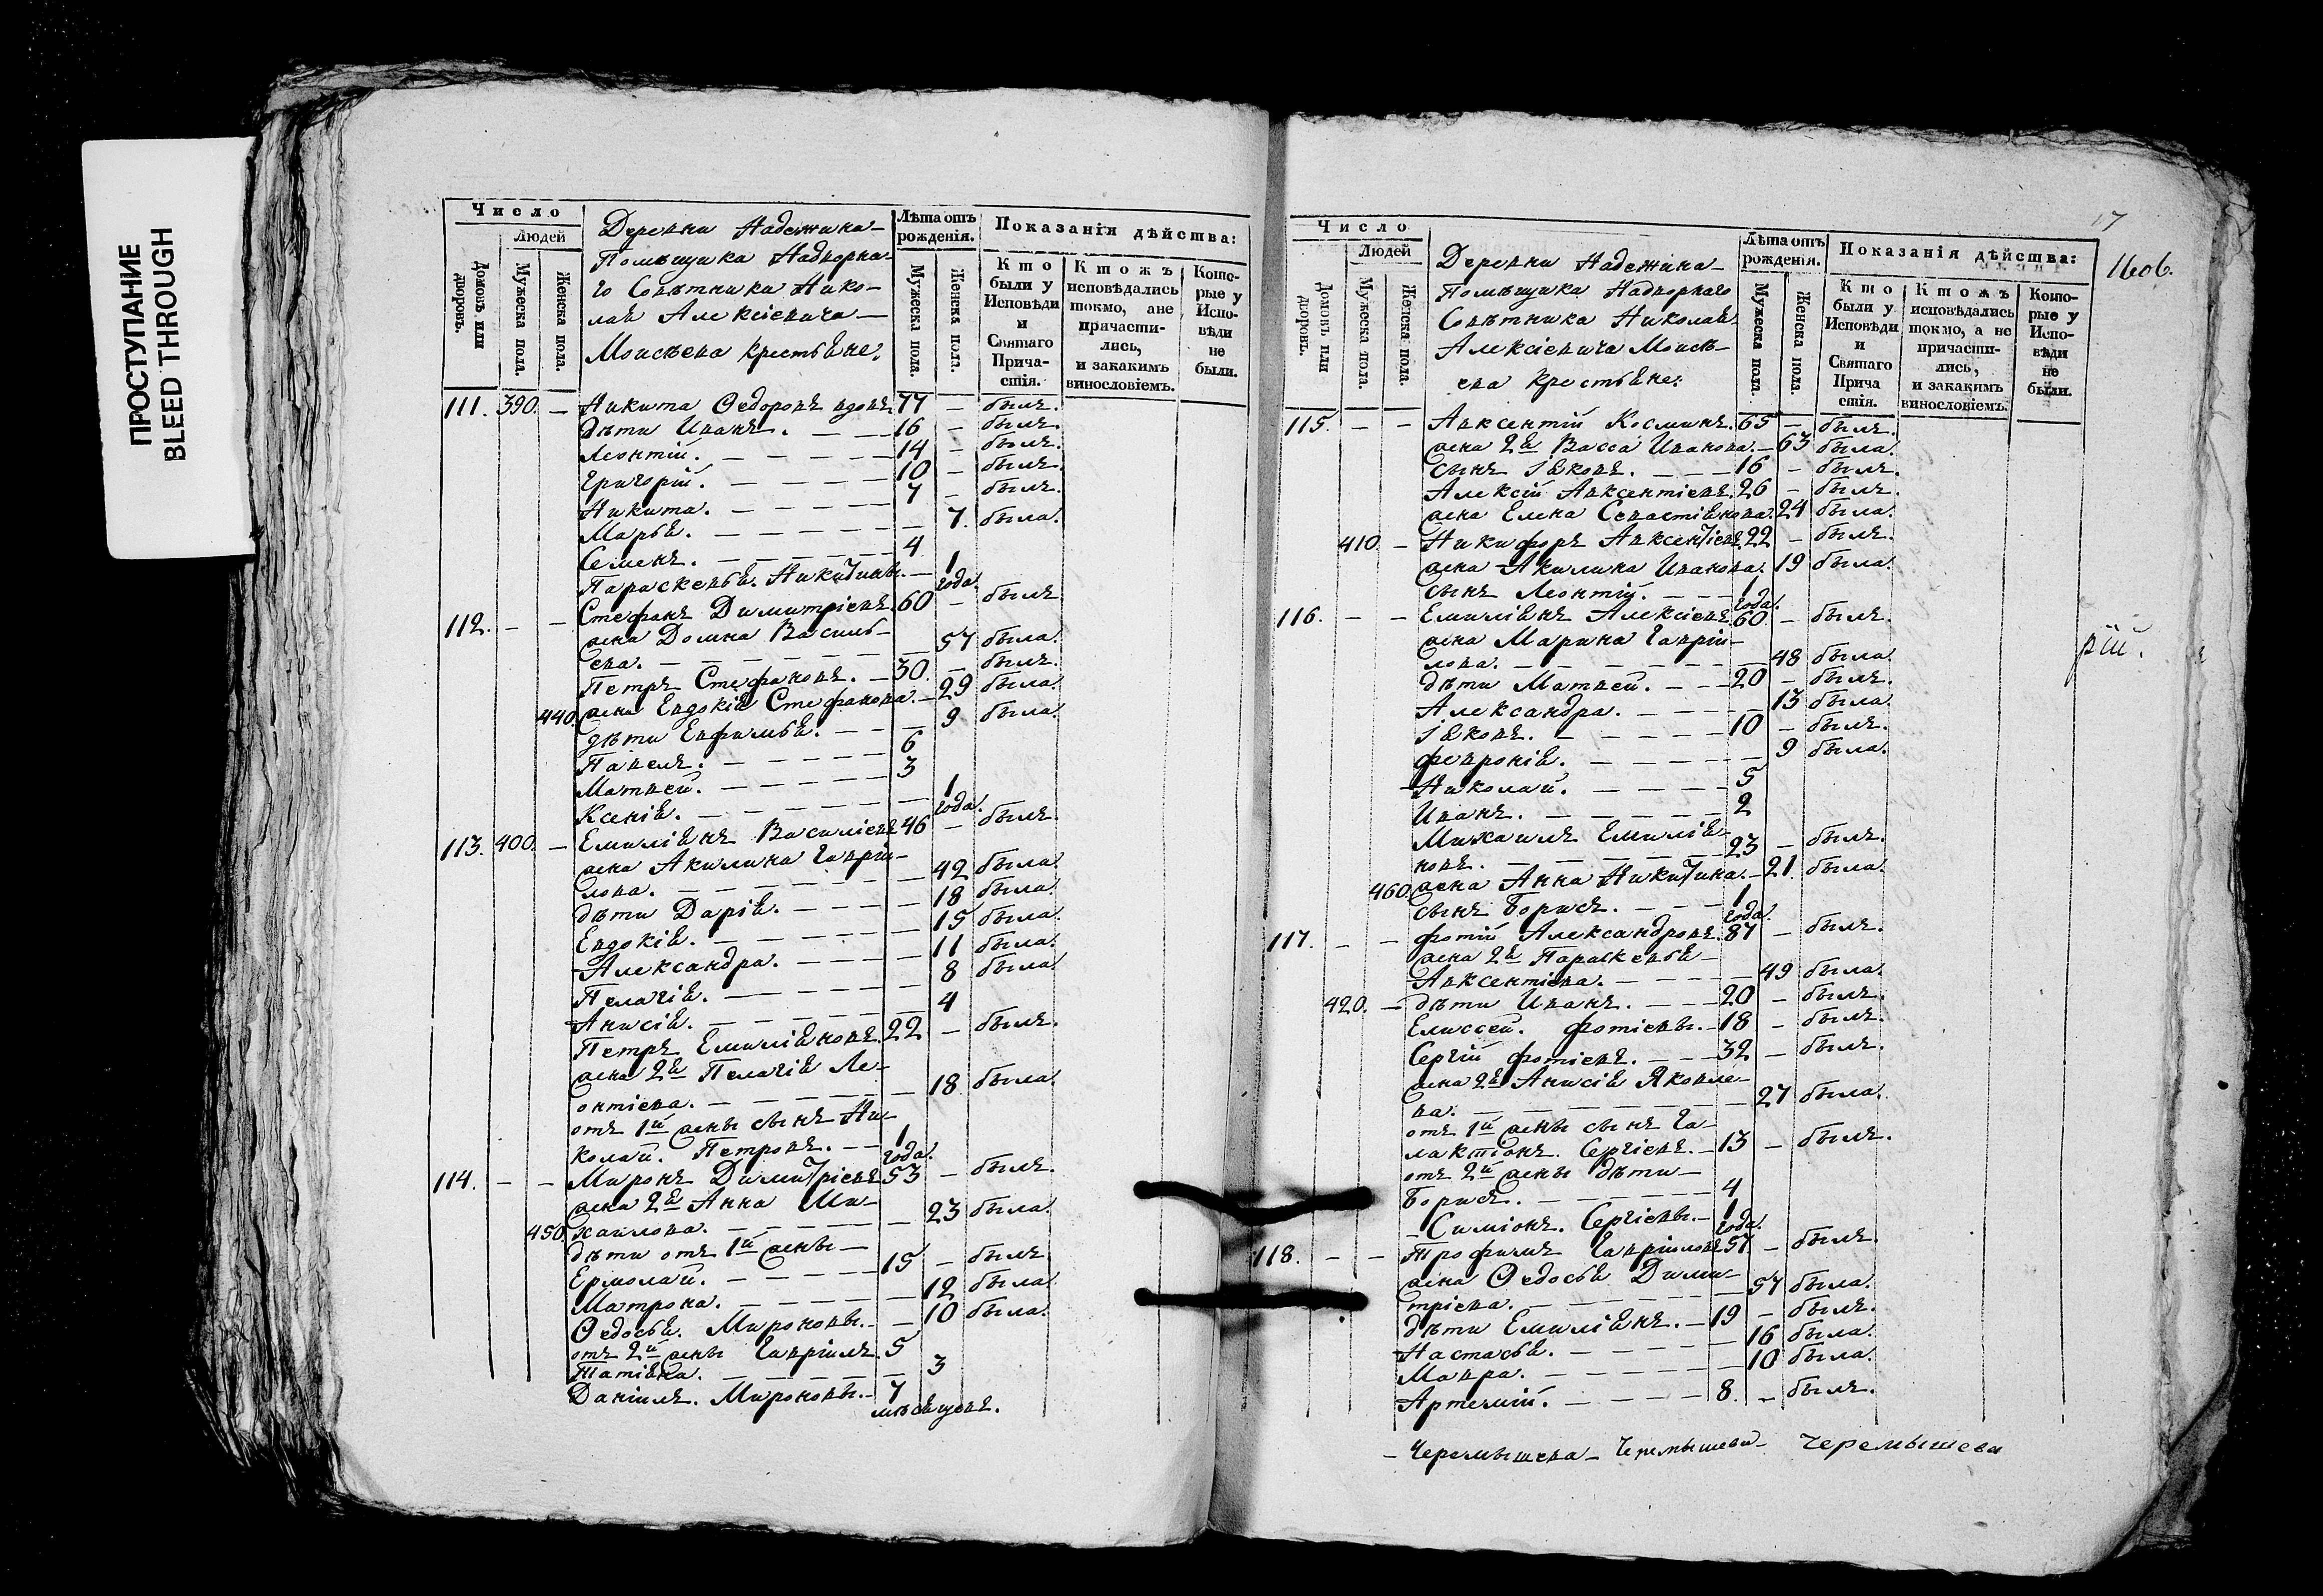 ПРОСТУПАНИЕ
BLEED THROUGH
Число
Людей
Домовъ или дворовъ.
Мужеска пола.
Женска пола.
Деревни Надежина
Помѣщика Надворна-
го Совѣтника Нико-
лая Алексіевича
Моисѣева крестьяне:
Лѣта отъ рожденія.
Мужеска пола.
Женска пола.
Показанія дѣйства:
Кто были у Исповѣди и Святаго Прича-стія.
Ктожъ исповѣдались токмо, а не причасти-лись, и закакимъ винословіемъ.
Кото-рые у Испо-вѣди не были.
111. 390. — Никита Ѳедоровъ вдовъ 77 — былъ.
дѣти Иванъ. — — 16 — былъ.
Леонтій. — — — 14 — былъ.
Григорій. — — — 10 — былъ.
Никита. — — — 7 — былъ.
Марья. — — — — 7. была.
Семенъ. — — — 4
Параскевья. Никитины. — 1 года.
112. — — Стефанъ Димитріевъ 60 — былъ
жена Домна Василь-
ева. — — — — 57 была.
Петръ Стефановъ. — 30. — былъ.
440. жена Евдокія Стефанова. — 29 была.
дѣти Евфимья. — — 9 была.
Павелъ. — — — 6
Матвей. — — — 3
Ксенія. — — — — 1 года.
113. 400. — Емиліянъ Василіевъ 46 — былъ.
жена Акилина Гаврій-
лова. — — — — 42 была.
дѣти Дарія. — — — 18 была.
Евдокія. — — — — 15 была.
Александра. — — — 11 была.
Пелагія. — — — — 8 была.
Анисія. — — — — 4
Петръ Емиліяновъ. 22 — былъ.
жена 2я Пелагія Ле-
онтіева. — — — — 18 была.
отъ 1й жены сынъ Ни-
колай. Петровъ. — — 1 года.
114. — — Миронъ Димитріевъ 53 — былъ.
жена 2я Анна Ми-
450. хаилова. — — — — 23 была.
дѣти отъ 1й жены —
Ермолай. — — — 15 — былъ.
Матрона. — — — — 12 была.
Ѳедосья. Мироновы. — — 10 была.
отъ 2й жены Гавріилъ. 5
Татіяна. — — — — 3
Даніилъ. Мироновы. — 7 мѣсяцевъ.
17
1606.
Число
Людей
Домовъ или дворовъ.
Мужеска пола.
Женска пола.
Деревни Надежина
Помѣщика Надворнаго
Совѣтника Николая
Алексіевича Моисѣ-
ева крестьяне:
Лѣта отъ рожденія.
Мужеска пола.
Женска пола.
Показанія дѣйства:
Кто были у Исповѣди и Святаго Прича стія.
Ктожъ исповѣдались токмо, а не причасти-лись, и закакимъ винословіемъ.
Кото-рые у Испо-вѣди не были.
115. — — Авксентій Косминъ. 65 — былъ.
жена 2я Васса Иванова. — 63 была.
сынъ Іяковъ. — — 16 — былъ.
Алексій Авксентіевъ. 26 — былъ.
жена Елена Севастіянова. 24 была.
410. — Никифоръ Авксентіевъ. 22 — былъ.
жена Акилина Иванова. 19 была.
сынъ Леонтій. — — 1 года.
116. — — Емиліянъ Алексіевъ. 60 — былъ.
жена Марина Гаврій-
лова. — — — — 48 была.
дѣти Матвей. — — 20 — былъ.
Александра. — — — 13 была.
Іяковъ. — — — 10 — былъ.
Февронія. — — — — 9 была.
Николай. — — — 5
Иванъ. — — — 2
Михаилъ Емилія-
новъ. — — — 23 — былъ.
460. жена Анна Никитина. — 21. была.
сынъ Борисъ. — — 1 года.
117. — — Фотій Александровъ. 87 — былъ.
жена 2я Параскевья
Авксентіева. — — — 49 была.
420. — дѣти Иванъ. — — 20 — былъ.
Елиссей. Фотіевы. — 18 — былъ.
Сергій Фотіевъ. — — 32 — былъ.
жена 2я Анисія Яковле-
ва. — — — — 27 была.
отъ 1й жены сынъ Га-
лактіонъ. Сергіевъ. — 13 — былъ.
отъ 2й жены дѣти —
Борисъ. — — — 4
Симіонъ. Сергіевы. — 1 года.
118. — — Трофимъ Гаврійловъ 57 — былъ.
жена Ѳедосья Дими-
тріева. — — — — 57 была.
дѣти Емиліянъ. — 19 — былъ.
Настасья. — — — — 16 была.
Мавра. — — — — 10 была.
Артемій. — — — 8. — былъ.
рій.
— Черемышева — Черемышева — Черемышева